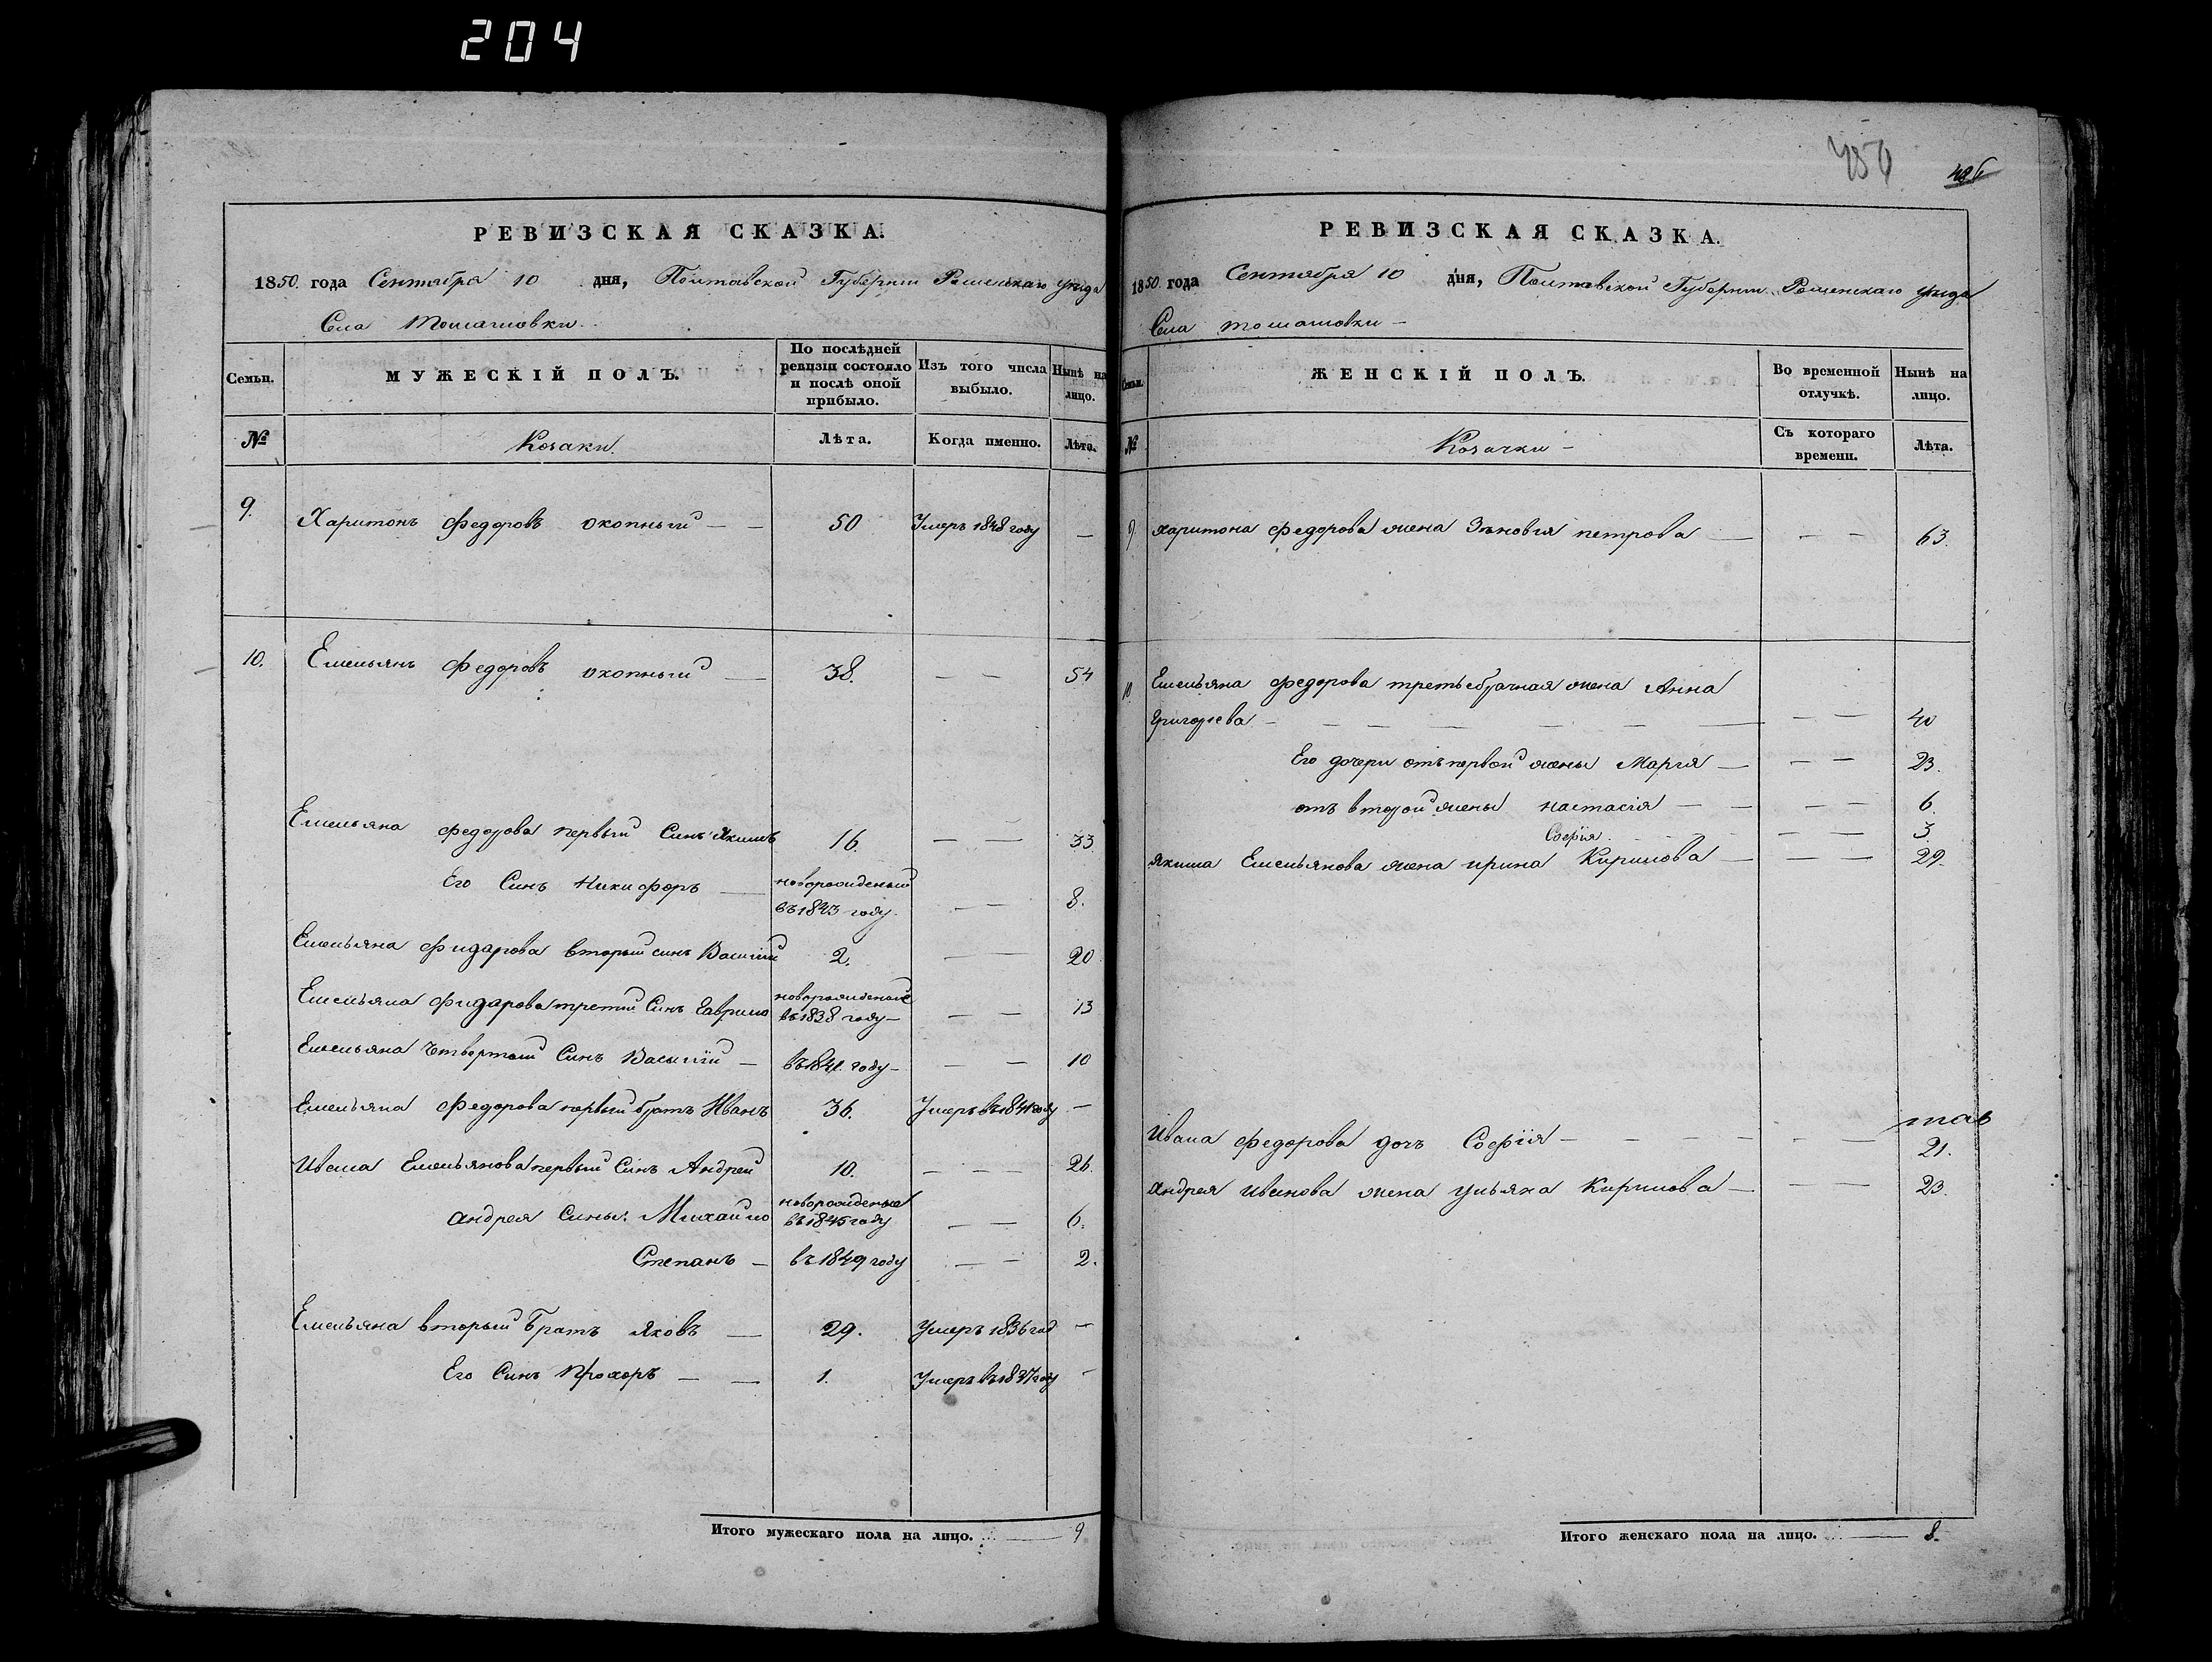 204
456
486
РЕВИЗСКАЯ СКАЗКА.
1850. года Сентября 10 дня, Полтавской Губернии Роменскаго уезда
Села Томашовки.
Семьи.
МУЖЕСКІЙ ПОЛЪ.
По послѣдней ревизіи состояло и послѣ оной прибыло.
Изъ того числа выбыло.
Нынѣ на лицо.
№
Козаки.
Лѣта.
Когда именно.
Лѣта.
9. Харитонъ Федоровъ Охопный — — 50 Умеръ 1848 году —
10. Емельянъ Федоровъ Охопный — 38. — — 54
Емельяна Федорова первый Синъ Якимъ 16. — — 33
Его Синъ Никифоръ — новорожденый въ 1843 году. — — 8.
Емельяна Фидарова вторый синъ Василий 2. — — 20
Емельяна Фидарова третий Синъ Гаврило новорожденые въ 1838 году — — — 13
Емельяна Четвертый Синъ Василій — въ 1841. году — — — 10
Емельяна Федорова первый братъ Иванъ 36. Умеръ въ 1841 году —
Ивана Емельянова первый Синъ Андрей 10. — — — 26.
Андрея Сины: Михайло новорожденые въ 1845 году — — 6.
Степанъ — въ 1849 году — — 2.
Емельяна вторый Братъ Яковъ — 29. Умеръ 1836 год —
Его Синъ Прохоръ — — 1. Умеръ въ 1837 году —
Итого мужескаго пола на лицо. — 9
РЕВИЗСКАЯ СКАЗКА.
1850 года Сентября 10 дня, Полтавской Губернии Роменскаго уезда
Села Томашовки —
Семьи.
ЖЕНСКІЙ ПОЛЪ.
Во временной отлучкѣ.
Нынѣ на лицо.
№
Козачки —
Съ котораго времени.
Лѣта.
9. Харитона Федорова жена Зѣновия Петрова — — — 63.
10 Емельяна Федорова третьебрачная жена Анна
Григорьева — — — — — — — — 40
Его дочери отъ первой жены Марія — — — 23.
отъ второй жены Настасія — — — — 6.
Софія. — — 3
Якима Емельянова жена Ирина Кирилова — — — 29.
Ивана Федорова дочь Софія — — — — — — 21.
Андрея Иванова жена Ульяна Кирилова — — — 23.
Итого женскаго пола на лицо. — 8.